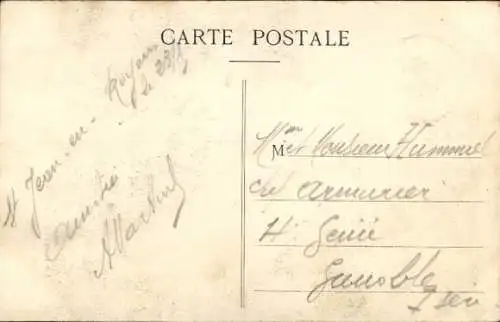 CARTE POSTALE
St Jean-en-Royans
le 23/8
Amitiés
A Martinel
Mme et Monsieur Hummel
chef Armurier
4e Génie
Grenoble
Isère